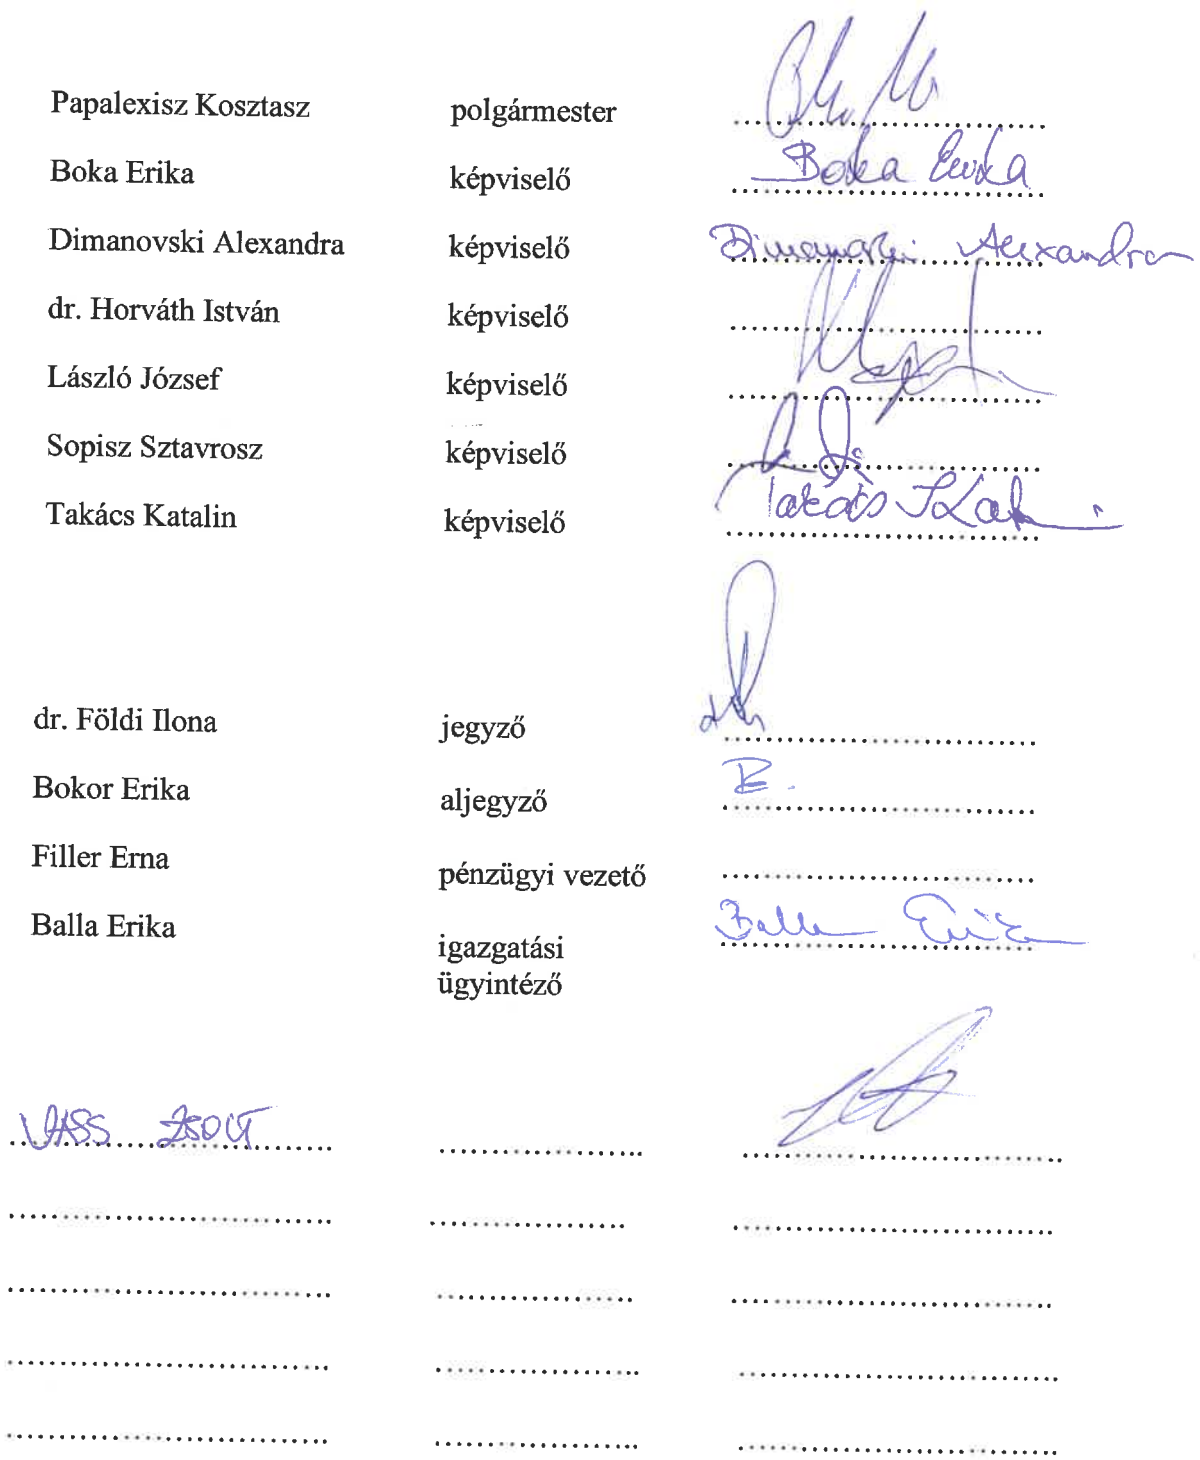 Papalexisz Kosztasz polgármester
Boka Erika képviselő Boka Erika
Dimanovski Alexandra képviselő Dimanovski Alexandra
dr. Horváth István képviselő
László József képviselő
Sopisz Sztavrosz képviselő
Takács Katalin képviselő Takács
dr. Földi Ilona jegyző
Bokor Erika aljegyző
Filler Erna pénzügyi vezető
Balla Erika igazgatási Balla Erika
ügyintéző
VASS ZSOLT